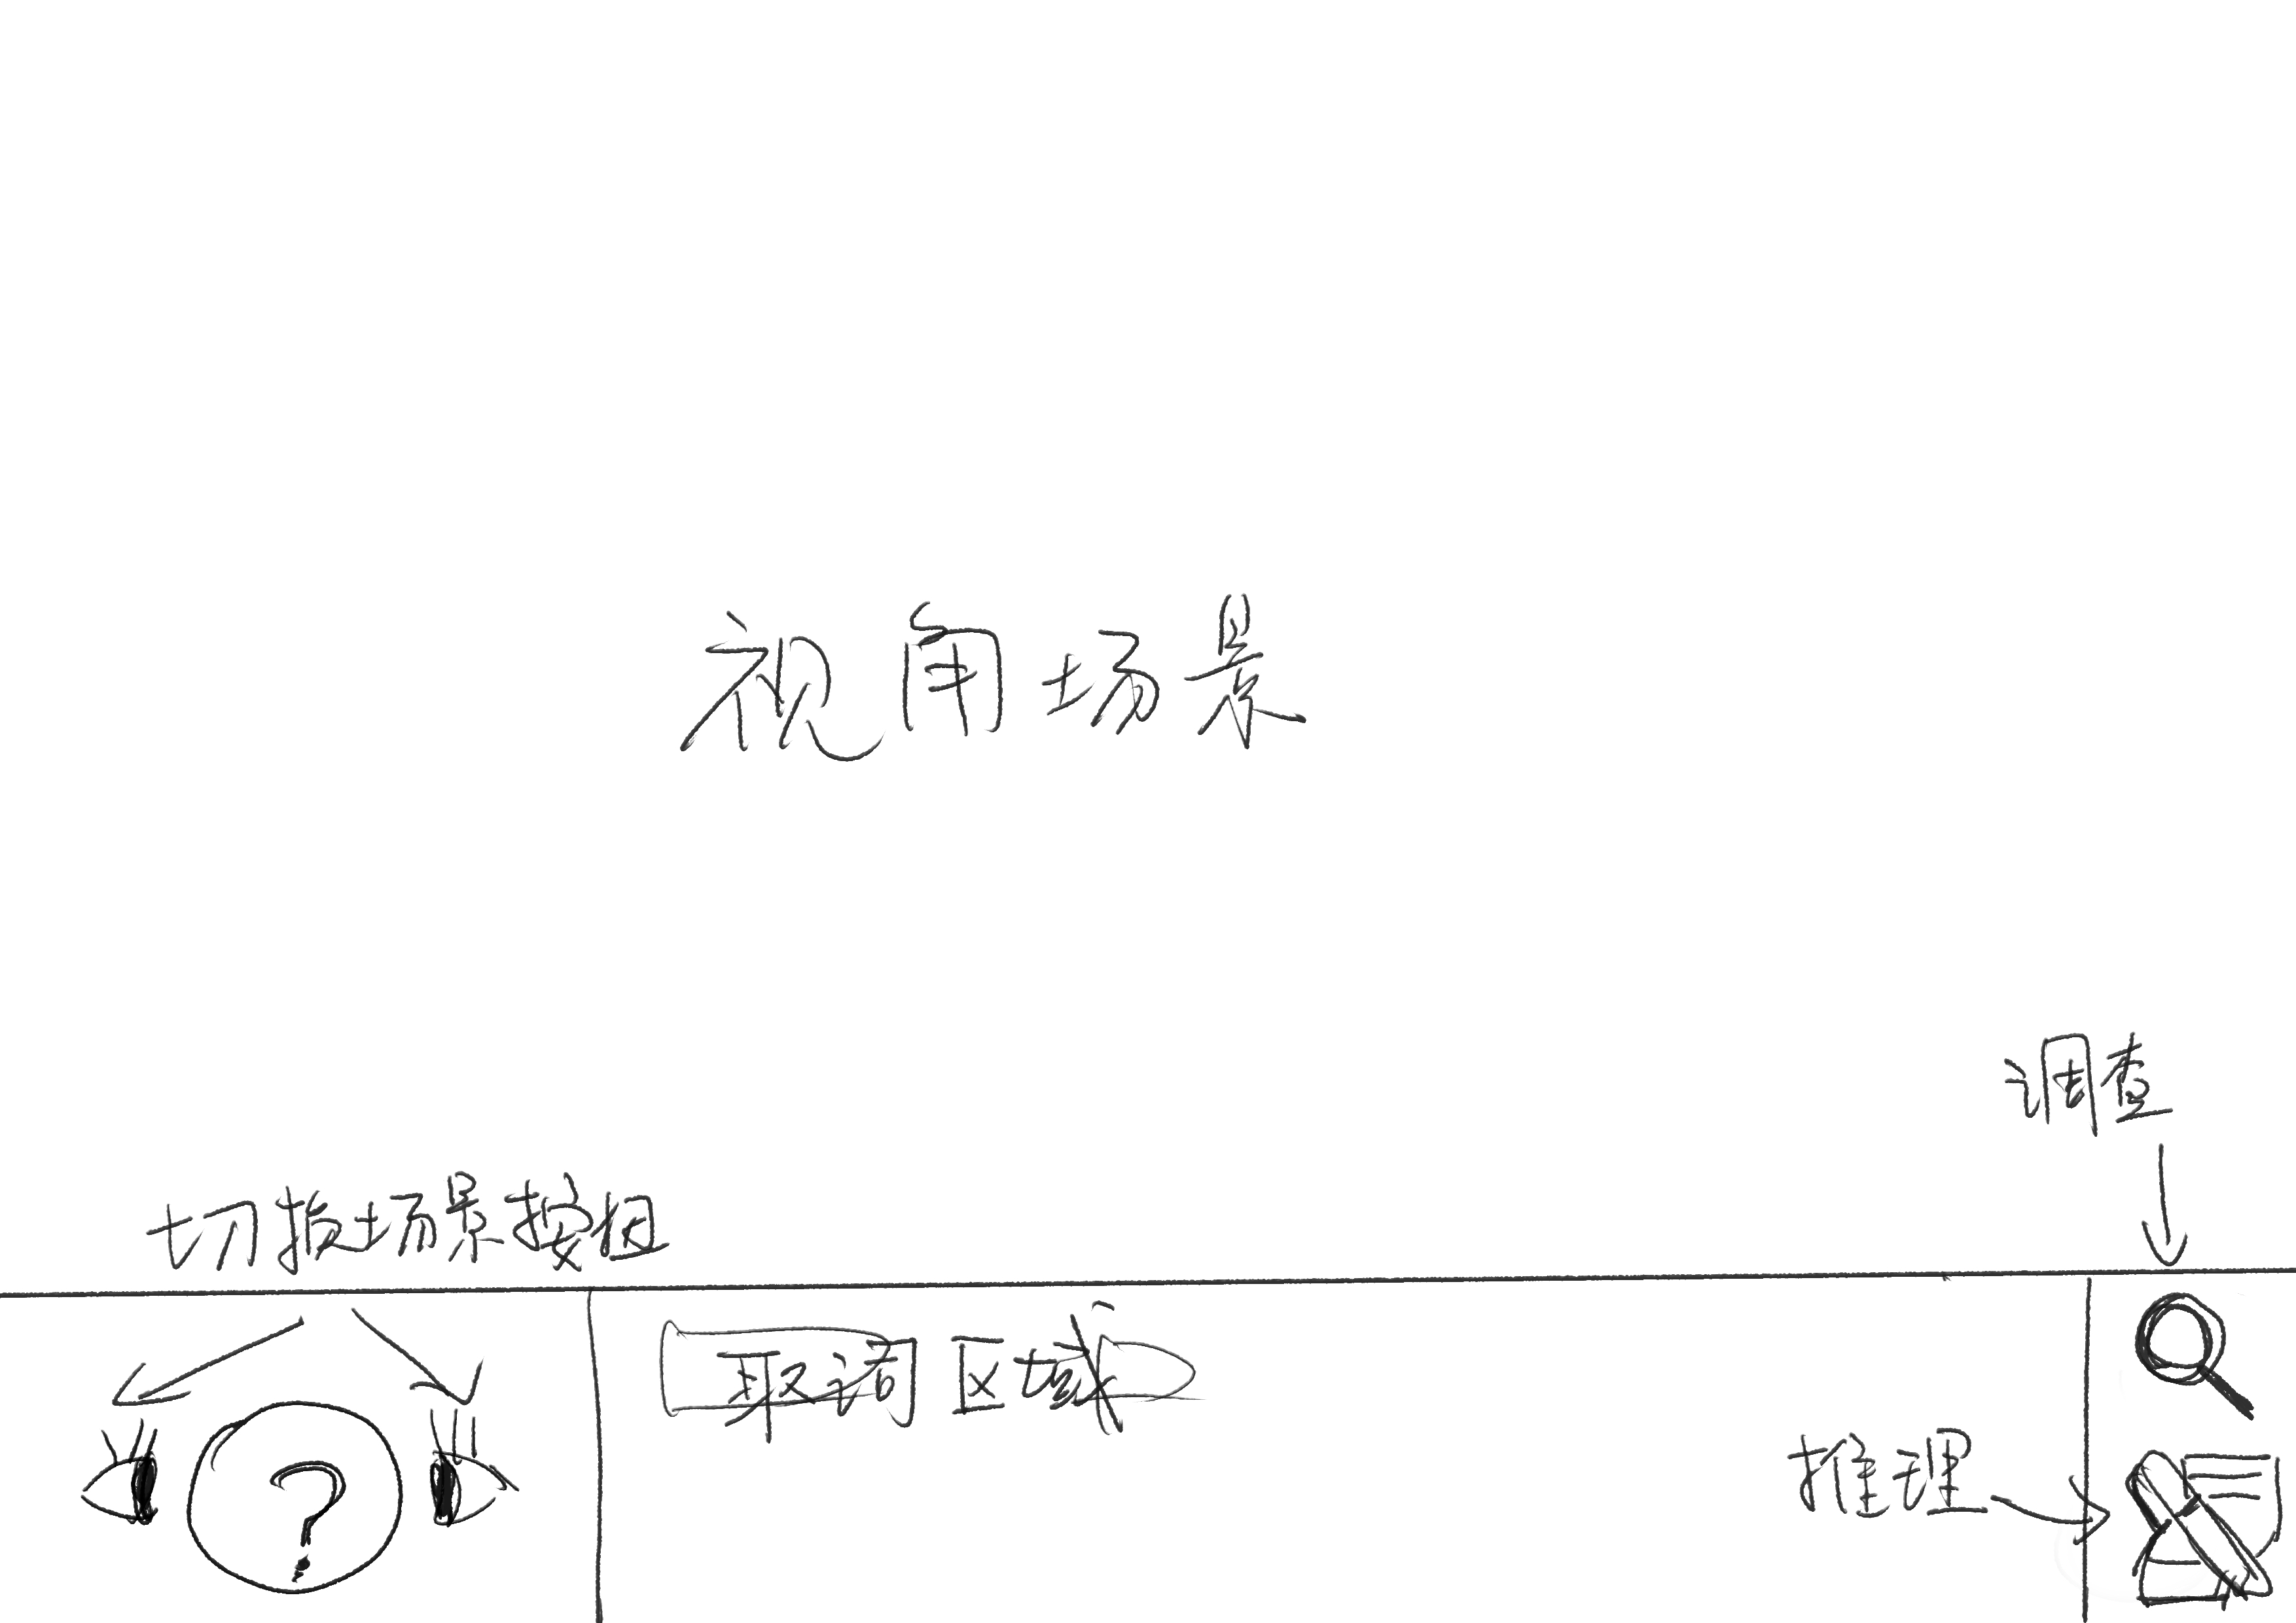 视角场景
调查
切换场景按钮
取词区域
推理
?